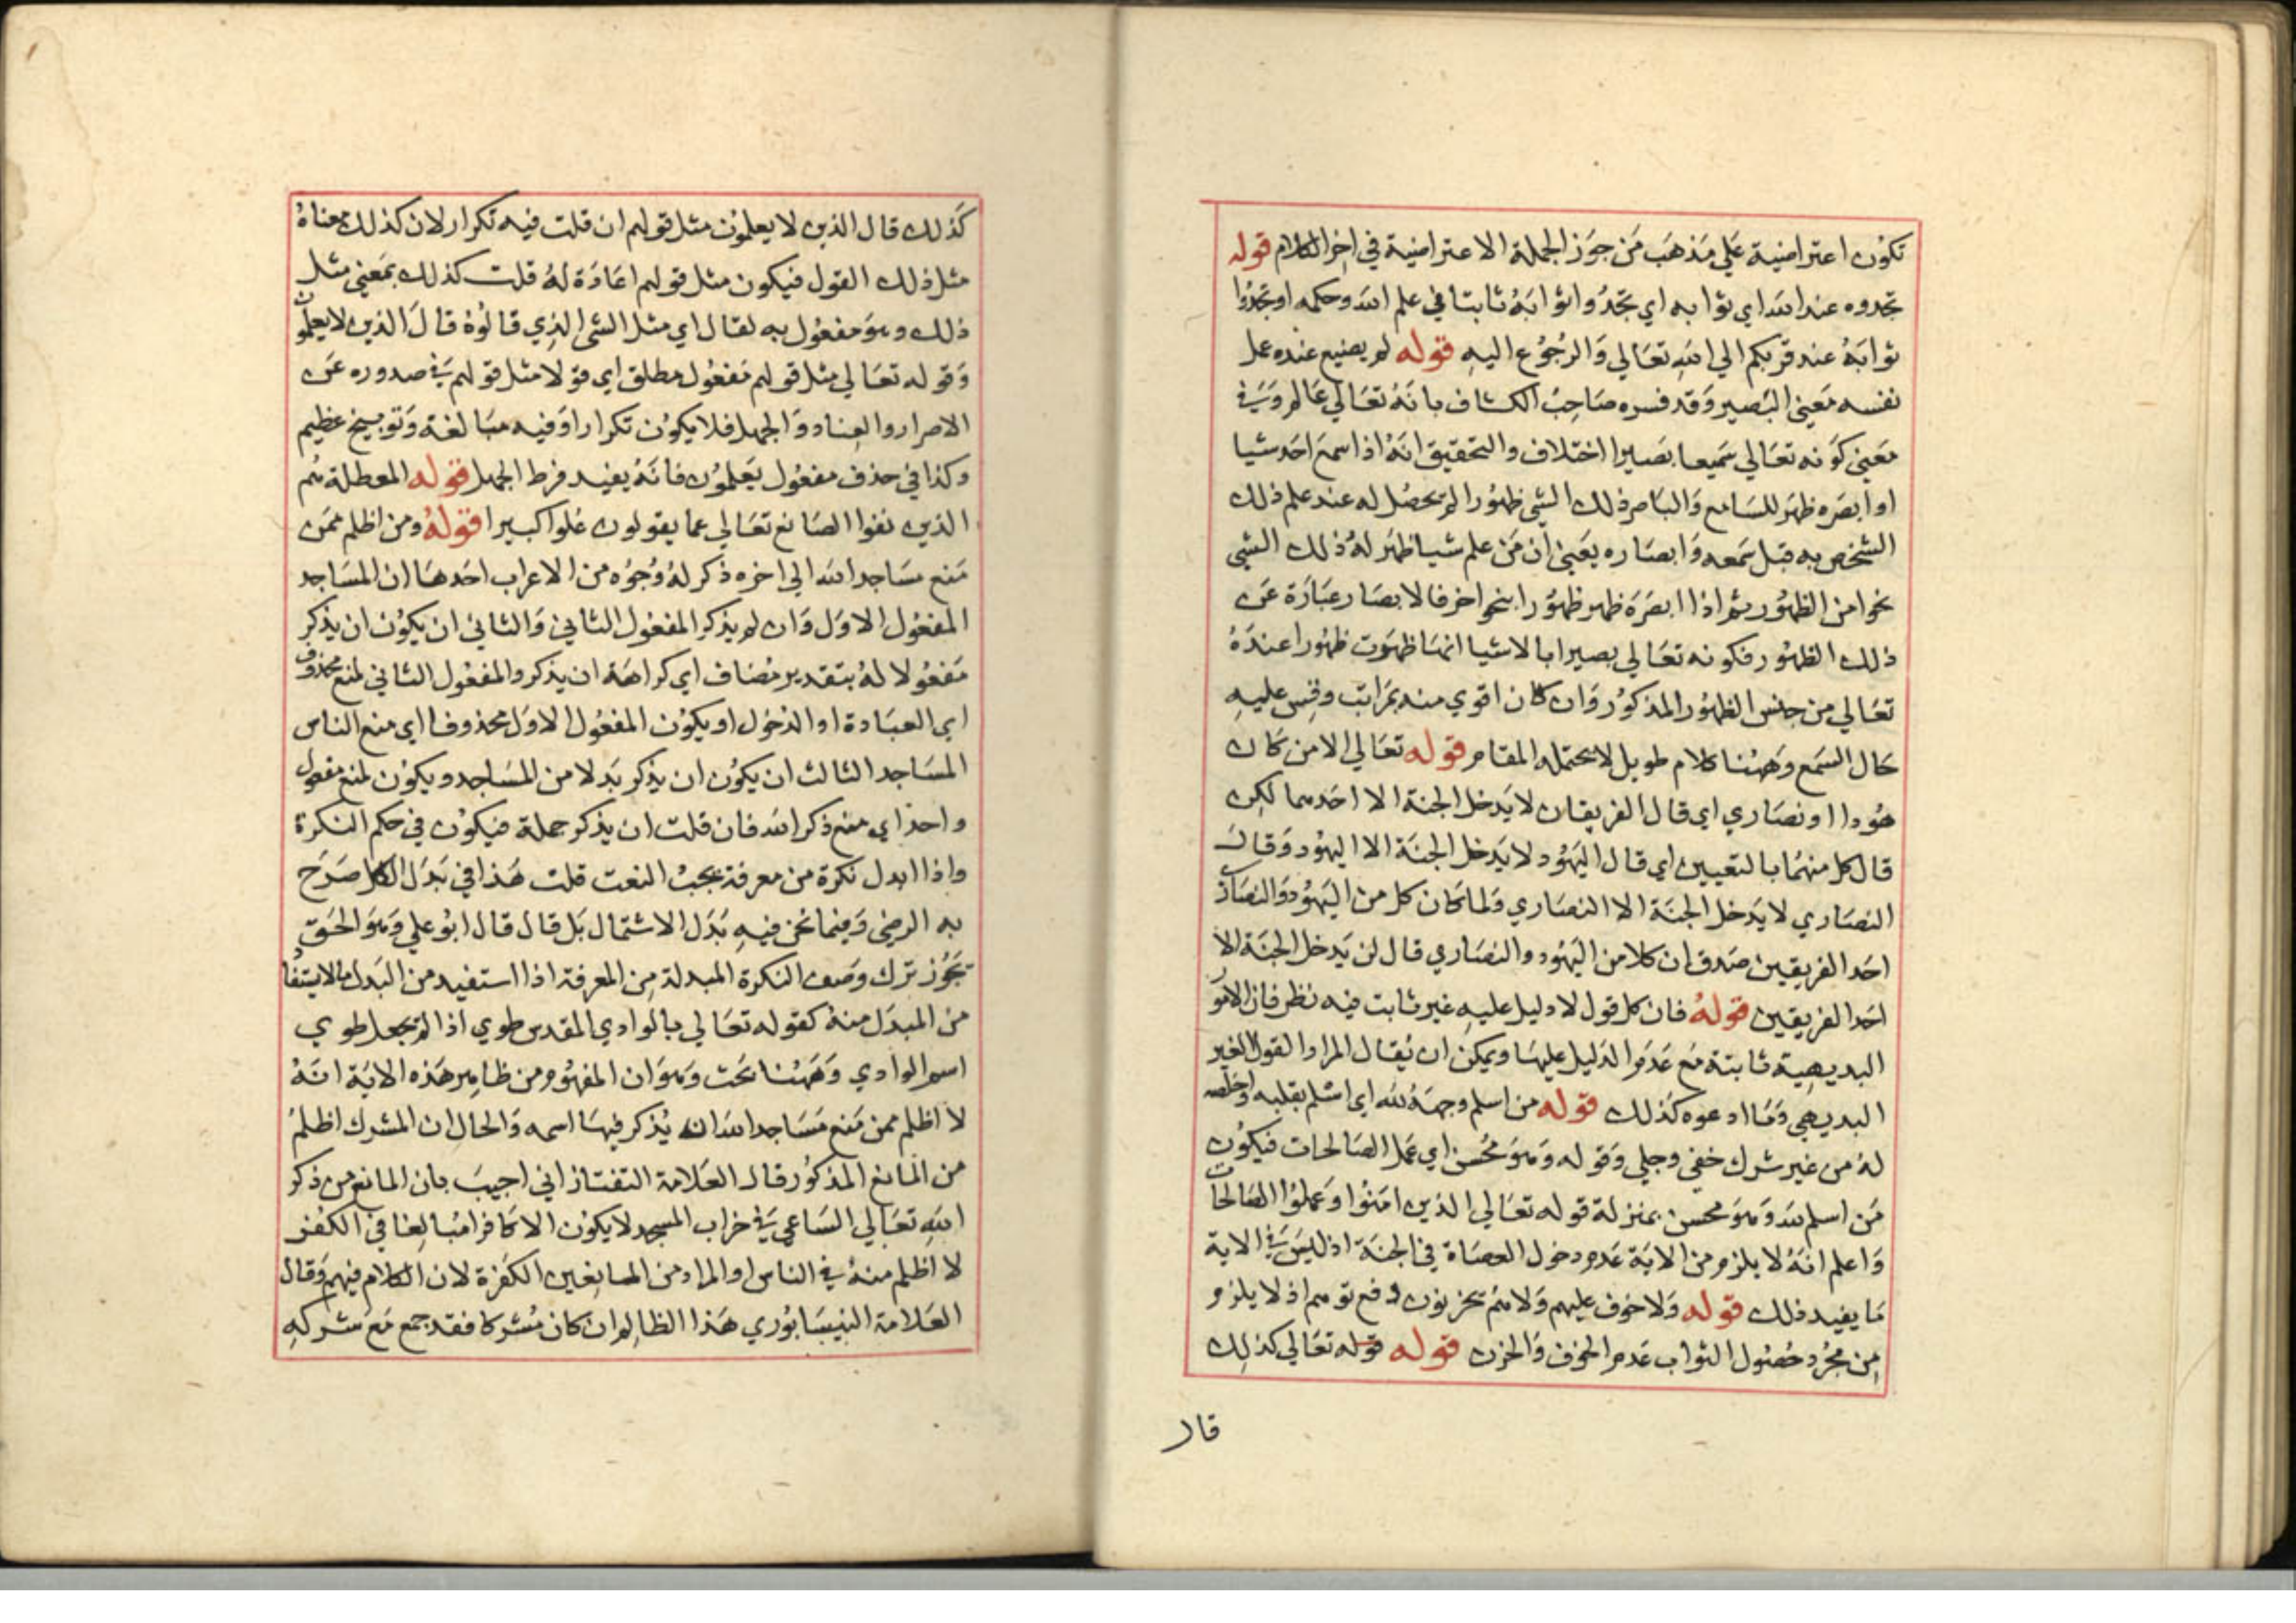 تكون اعتراضية علي مذهب من جوز الجملة الاعتراضية في اخر الكلام قوله
تجدوه عند الله اي ثوابه اي تجدوا ثوابه ثابتا في علم الله وحكمه او تجدوا
ثوابه عند قربكم الي الله تعالي والرجوع اليه قوله لم يضيع عنده عمل
نفسه معني البصير وقد فسره صاحب الكشاف بانه تعالي عالم وفي
معني كونه تعالي سميعا بصيرا اختلاف والتحقيق انه اذا اسمع احد شيا
او ابصره ظهر للسامع والباصر ذلك الشي ظهورا لم يحصل له عند علم ذلك
الشخص به قبل سمعه وابصاره يعني ان من علم شيا ظهر له ذلك الشي
نحوا من الظهور ثم اذا ابصره ظهر ظهورا بنحو اخر فالابصار عبارة عن
ذلك الظهور فكونه تعالي بصيرا بالاشيا انها ظهرت ظهورا عنده
تعالي من جنس الظهور المذكور وان كان اقوي منه بمراتب وقس عليه
حال السمع وههنا كلام طويل لا يحتمله المقام قوله تعالي الا من كان
هودا او نصاري اي قال الفريقان لا يدخل الجنة الا احدهما لكن
قال كل منهما بالتعيين اي قال اليهود لا يدخل الجنة الا اليهود وقالت
النصاري لا يدخل الجنة الا النصاري ولما كان كل من اليهود والنصاري
احد الفريقين صدق ان كلا من اليهود والنصاري قال لن يدخل الجنة الا
احد الفريقين قوله فان كل قول لا دليل عليه غير ثابت فيه نظر فان الامور
البديهية ثابتة مع عدم الدليل عليها ويمكن ان يقال المراد القول الغير
البديهي وما ادعوه كذلك قوله من اسلم وجهه لله اي اسلم بقلبه واخلصه
له من غير شرك خفي وجلي وقوله وهو محسن اي عمل الصالحات فيكون
من اسلم لله وهو محسن بمنزلة قوله تعالي الذين امنوا وعملوا الصالحات
واعلم انه لا يلزم من الاية عدم دخول العصاة في الجنة اذ ليس في الاية
ما يفيد ذلك قوله ولا خوف عليهم ولا هم يحزنون دفع توهم اذ لا يلزم
من مجرد حصول الثواب عدم الخوف والحزن قوله قوله تعالي كذلك
قال
كذلك قال الذين لا يعلمون مثل قولهم ان قلت فيه تكرار لان كذلك معناه
مثل ذلك القول فيكون مثل قولهم اعادة له قلت كذلك بمعني مثل
ذلك وهو مفعول به لقال اي مثل الشي الذي قالوه قال الذين لا يعلمون
وقوله تعالي مثل قولهم مفعول مطلق اي قولا مثل قولهم في صدوره عن
الاصرار والعناد والجهل فلا يكون تكرارا وفيه مبالغة وتوبيخ عظيم
وكذا في حذف مفعول يعلمون فانه يفيد فرط الجهل قوله المعطلة هم
الذين نفوا الصانع تعالي عما يقولون علوا كبيرا قوله ومن اظلم ممن
منع مساجد الله الي اخره ذكر له وجوه من الاعراب احدها ان المساجد
المفعول الاول وان لم يذكر المفعول الثاني والثاني ان يكون ان يذكر
مفعولا له بتقدير مضاف اي كراهة ان يذكر والمفعول الثاني لمنع محذوف
اي العبادة او الدخول او يكون المفعول الاول محذوفا اي منع الناس
المساجد الثالث ان يكون ان يذكر بدلا من المساجد ويكون لمنع مفعول
واحد اي منع ذكر الله فان قلت ان يذكر جملة فيكون في حكم النكرة
واذا ابدل نكرة من معرفة يجب النعت قلت هذا في بدل الكل صرح
به الرضي وفيما نحن فيه بدل الاشتمال بل قال قال ابو علي وهو الحق
يجوز ترك وصف النكرة المبدلة من المعرفة اذا استفيد من البدل ما لا يستفاد
من المبدل منه كقوله تعالي بالوادي المقدس طوي اذا لم يجعل طوي
اسم الوادي وههنا بحث وهو ان المفهوم من ظاهر هذه الاية انه
لا اظلم ممن منع مساجد الله ان يذكر فيها اسمه والحال ان المشرك اظلم
من المانع المذكور قال العلامة التفتازاني اجيب بان المانع من ذكر
الله تعالي الساعي في خراب المسجد لا يكون الا كافرا مبالغا في الكفر
لا اظلم منه في الناس او المراد من المانعين الكفرة لان الكلام فيهم وقال
العلامة النيسابوري هذا الظالم ان كان مشركا فقد جمع مع شركه